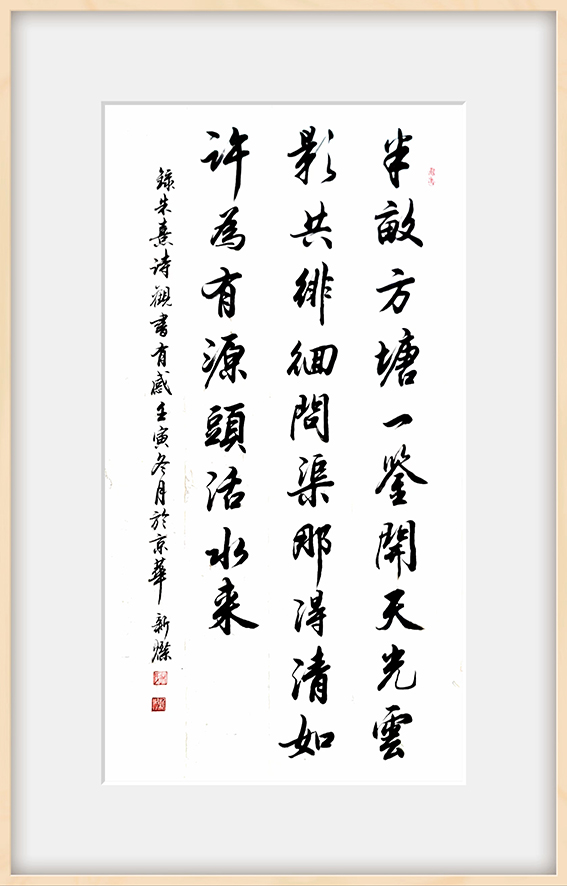 半畝方塘一鑒開天光雲
影共徘徊問渠那得清如
許為有源頭活水来
錄朱熹詩觀書有感壬寅冬月於京華 新燦